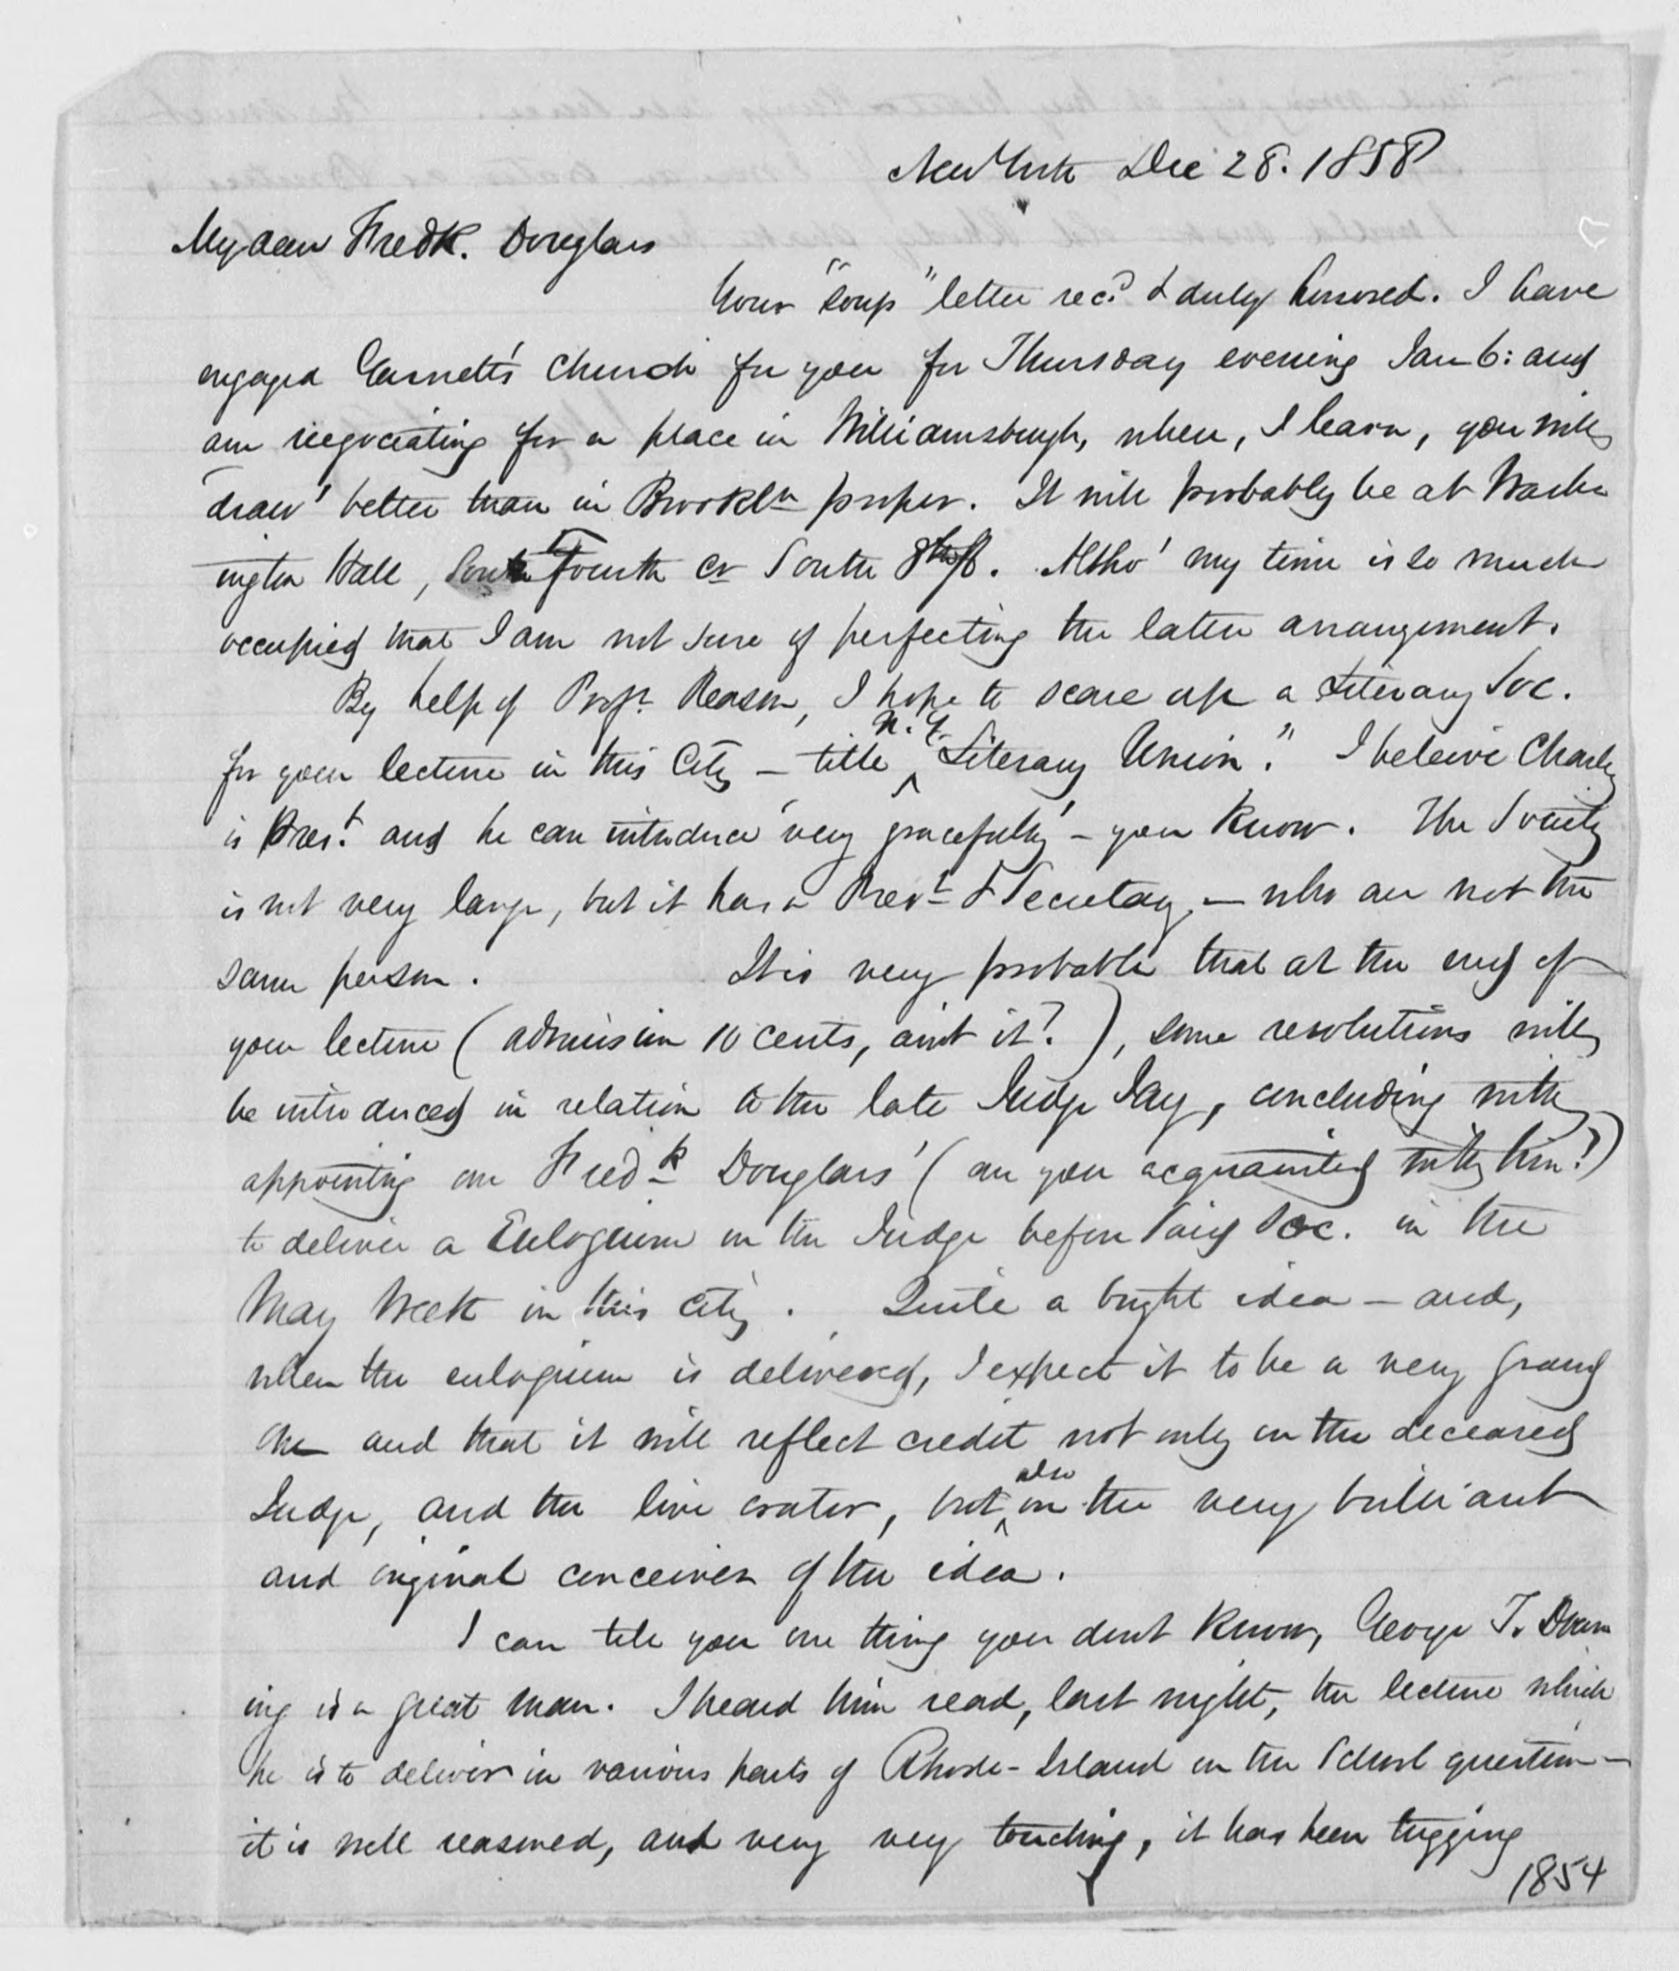 New York Dec 28. 1858
My dear Fredk. Douglass
Your "soup" letter rec'd & duly honored. I have
engaged Garnett's church for you for Thursday evening Jan 6: and
am negociating for a place in Williamsburgh, where, I learn, you will
'draw' better than in Brookln proper. It will probably be at Wash
ington Hall, Fourth cr South 8th St. Altho' my time is so much
occupied that I am not sure of perfecting the latter arrangement.
By help of Profr. Reason, I hope to scare up a Literary Soc.
for your lecture in this City — title N. Y. Literary Union." I beleive Charley
is Prest. and he can introduce 'very gracefully' — you know. The Society
is not very large, but it has a Prest & Secretary, — who are not the
same person. It is very probable that at the end of
your lecture (admission 10 cents, aint it?), some resolutions will
be introduced in relation to the late Judge Jay, concluding with
appointing one Fredk Douglass' (are you acquainted with him?)
to deliver a Eulogium on the Judge before said Soc. in the
May Week in this city. Quite a bright idea — and,
when the eulogium is delivered, I expect it to be a very grand
one and that it will reflect credit not only on the deceased
Judge, and the live orator, but also on the very brilliant
and original conceiver of the idea.
I can tell you one thing you dont know, George T. Down
ing is a great man. I heard him read, last night, the lecture which
he is to deliver in various parts of Rhode-Island on the School question —
it is well reasoned, and very very touching, it has been tugging
1854